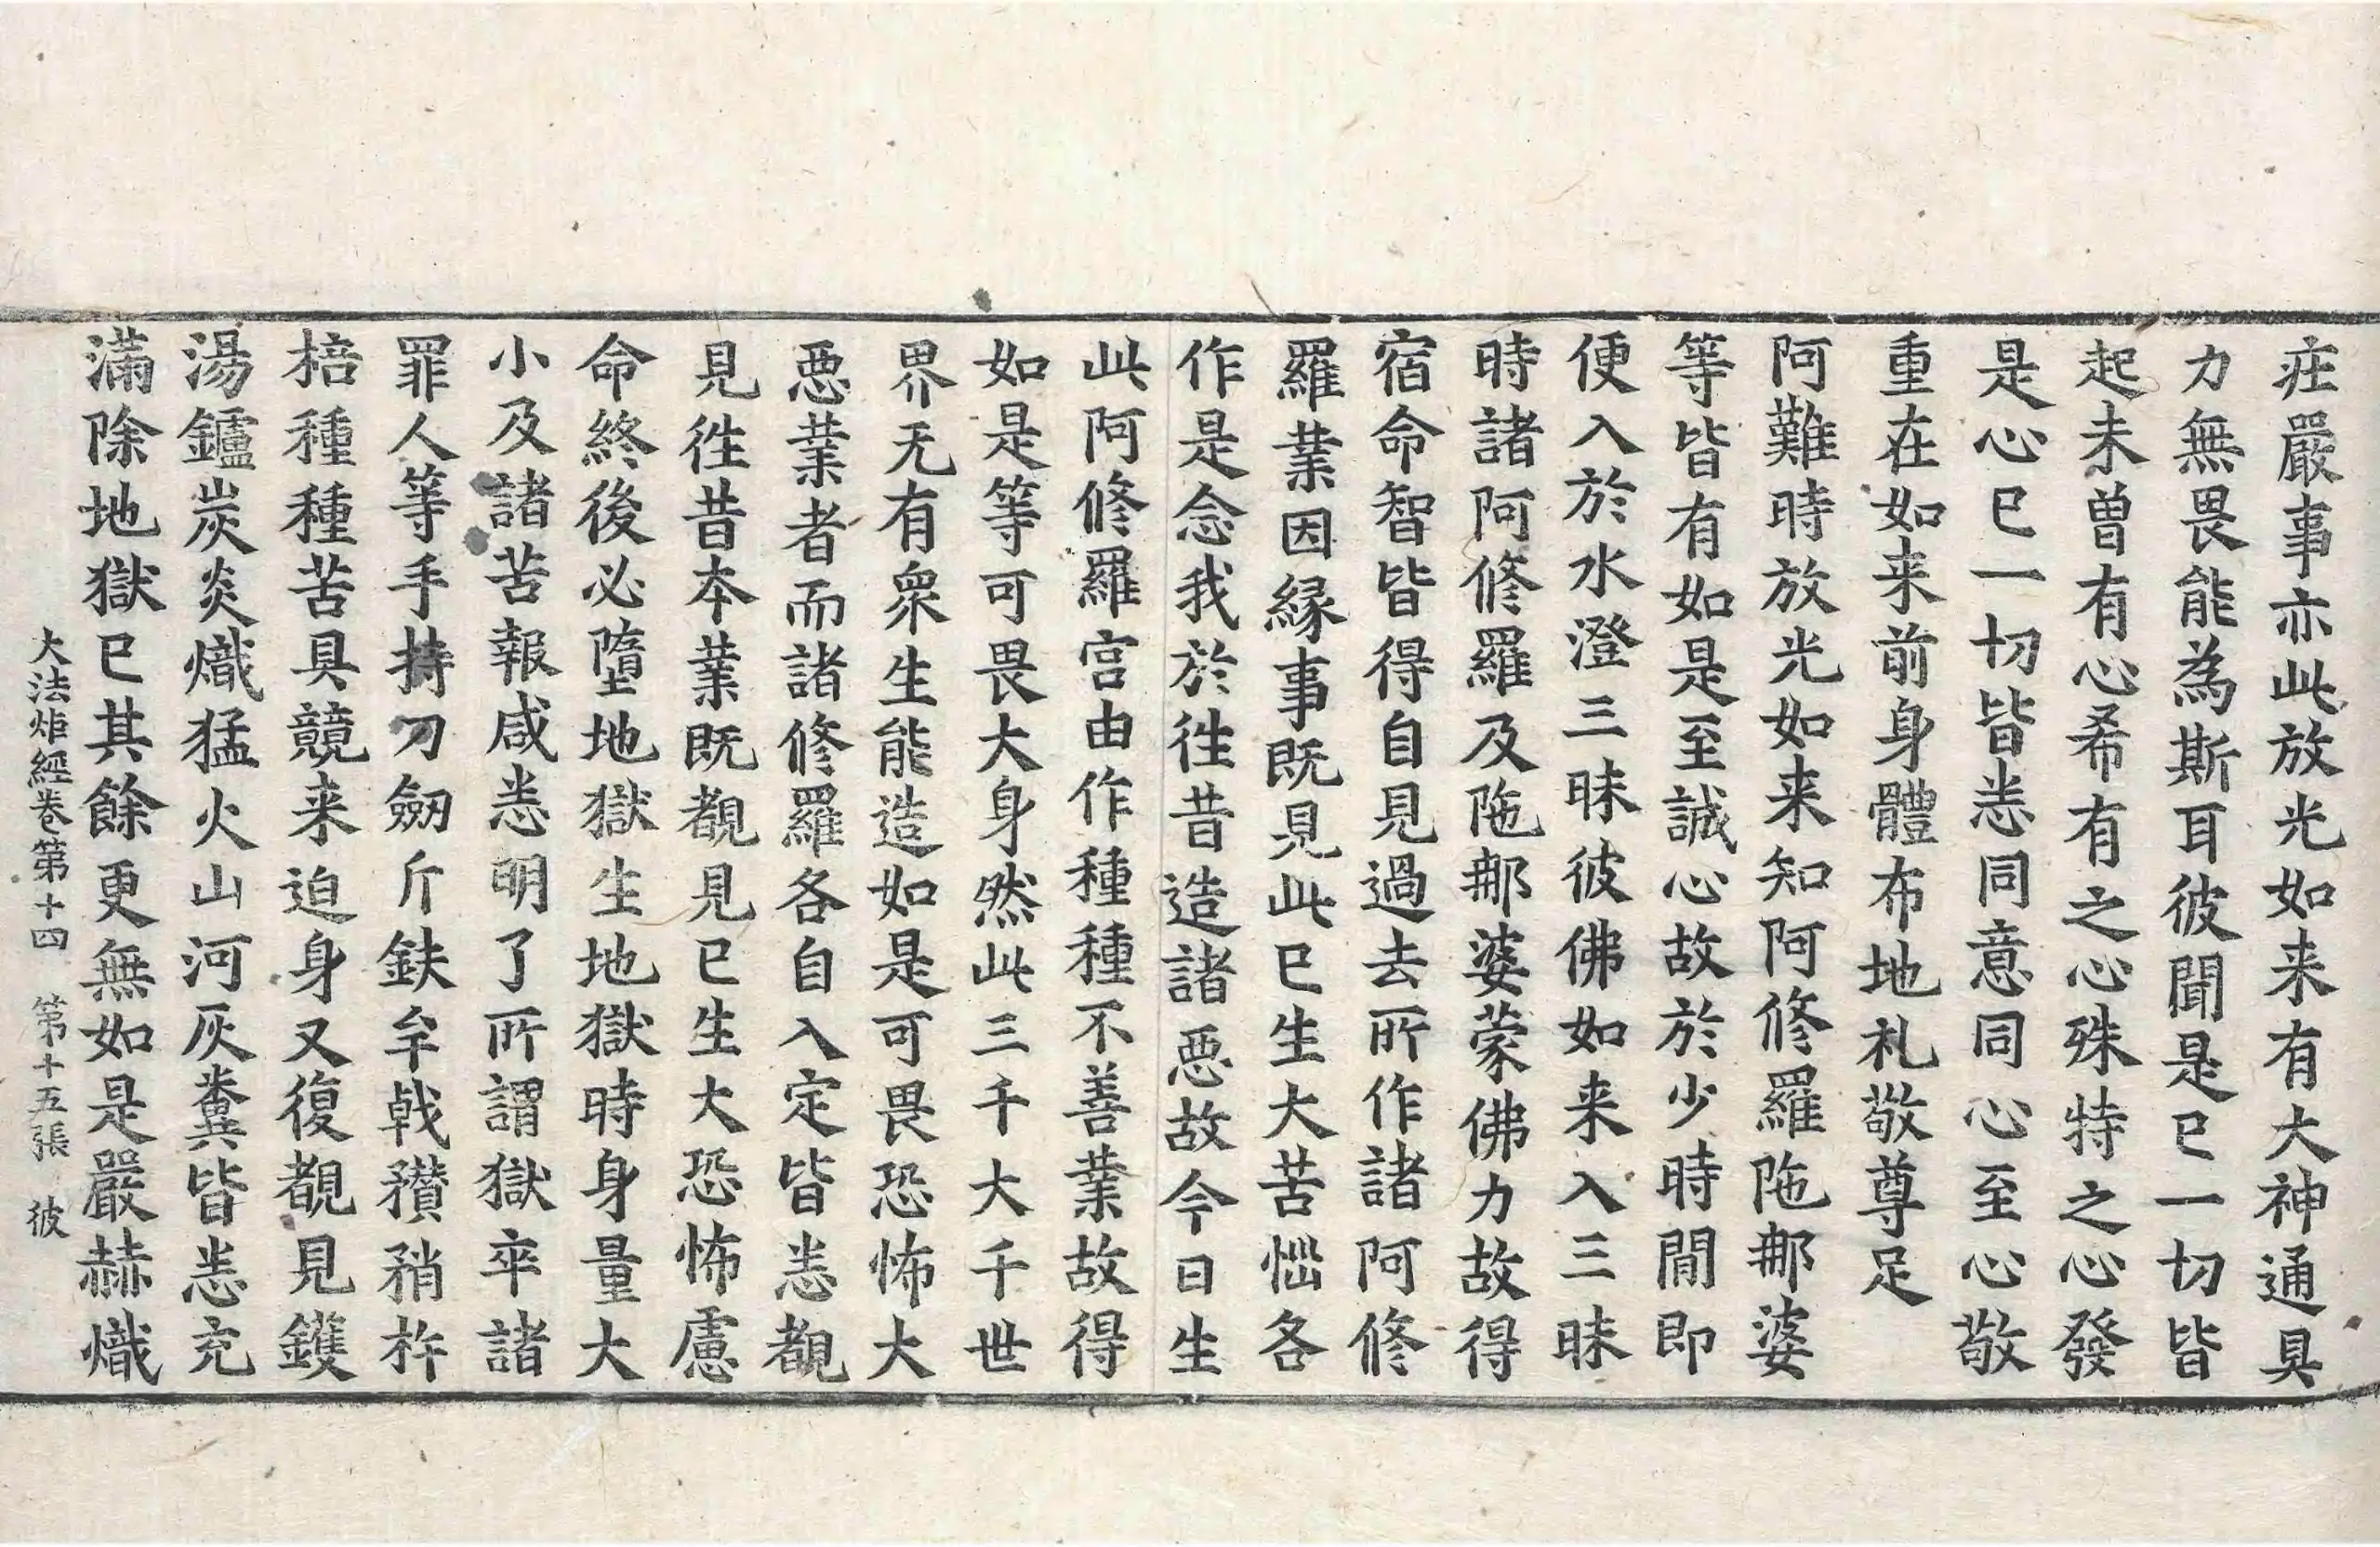 疘嚴事亦此放光如来有大神通具
力無畏能為斯耳彼聞是已一切皆
起未曾有心希有之心殊特之心發
是心已一切皆悉同意同心至心敬
重在如来前身體布地礼敬尊足
阿難時放光如来知阿修羅陁䣍婆
等皆有如是至誠心故於少時間即
便入於水澄三昧彼佛如来入三昧
時諸阿修羅及陁䣍婆蒙佛力故得
宿命智皆得自見過去所作諸阿修
羅業因縁事既見此已生大苦惱各
作是念我於徃昔造諸惡故今日生
此阿修羅宫由作種種不善業故得
如是等可畏大身然此三千大千世
界无有衆生能造如是可畏恐怖大
惡業者而諸修羅各自入定皆悉覩
見徃昔本業既覩見已生大恐怖慮
命終後必墮地獄生地獄時身量大
小及諸苦報咸悉明了所謂獄卒諸
罪人等手持刀劒斤鈇牟戟穳矟杵
棓種種苦具競来迫身又復覩見鑊
湯鑪炭炎熾猛火山河灰糞皆悉充
滿除地獄已其餘更無如是嚴赫熾
大法炬經卷第十四　第十五張　彼